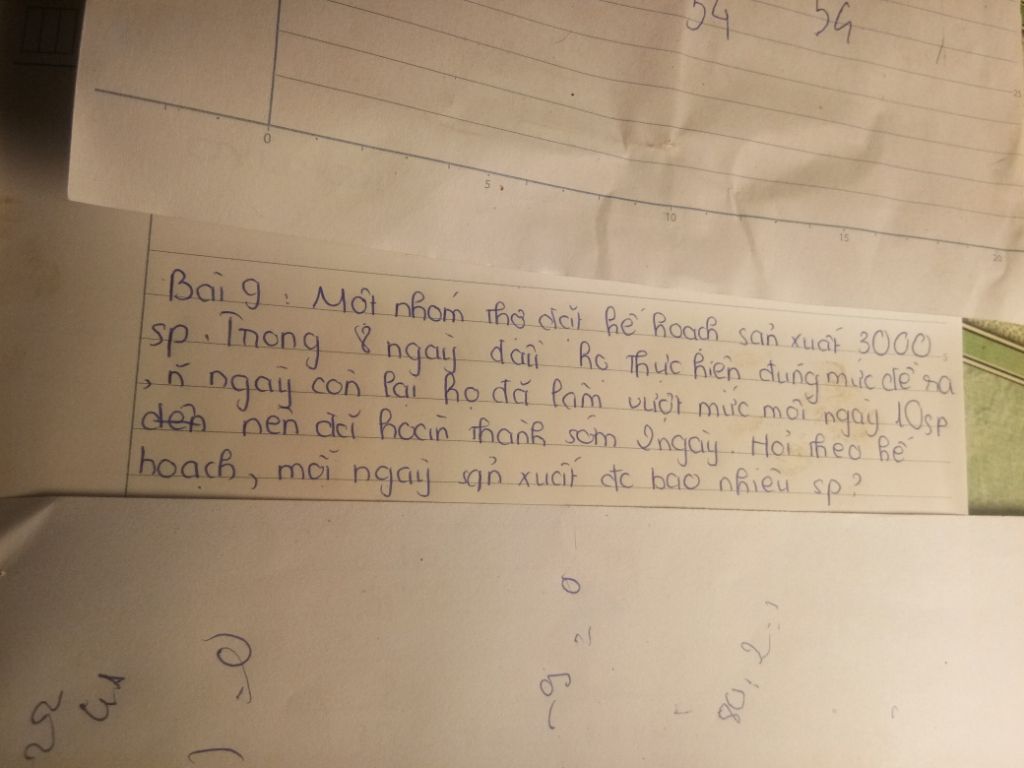 54 54
25
0
5
10
15
20
Bài 9 : Một nhóm thợ đặt kế hoạch sản xuất 3000
sp. Trong 8 ngày đầu họ thực hiện đúng mức đề ra
, n ngày còn lại họ đã làm vượt mức mỗi ngày 10sp
đến nên đã hoàn thành sớm 2ngày. Hỏi theo kế
hoạch, mỗi ngày sản xuất đc bao nhiêu sp?